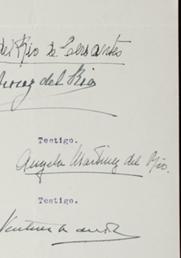 del Río de Cervantes
del Río
Testigo.
Angela Martínez del Río.
Testigo.
Ventura